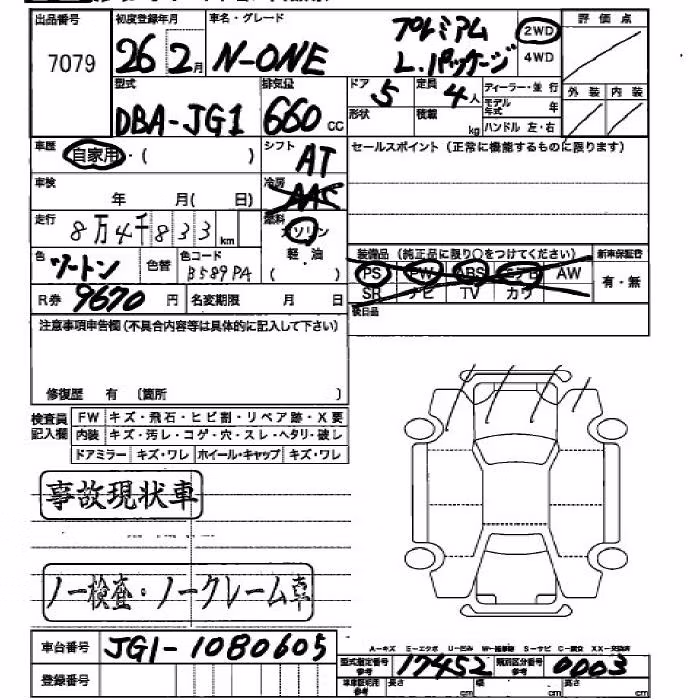 出品番号 初度登録年月 車名・グレード プレミアム 2WD 評価点
7079 26 2月 N-ONE L.パッケージ 4WD
型式 排気量 ドア 定員 ディーラー・並行 外装 内装
DBA-JG1 660cc 5 4人 モデル年式 年
形状 積載 kg ハンドル 左・右
車歴 自家用・( ) シフト AT セールスポイント (正常に機能するものに限ります)
車検 年 月( 日) 冷房
走行 8万4千833km 燃料 ガソリン
軽・油
( )
色 ツートン 色替 色コード B589PA
装備品 (純正品に限り○をつけてください) 新車保証書
PS PW ABS エアB AW 有・無
SR ナビ TV カワ
R券 9670円 名変期限 月 日
後日品
注意事項申告欄(不具合内容等は具体的に記入して下さい)
修復歴 有 〔箇所 〕
検査員記入欄 FW キズ・飛石・ヒビ割・リペア跡・X要
内装 キズ・汚レ・コゲ・穴・スレ・ヘタリ・破レ
ドアミラー キズ・ワレ ホイール・キャップ キズ・ワレ
事故現状車
ノー検査・ノークレーム車
車台番号 JG1-1080605
A-キズ E-エクボ U-凹み S-サビ
型式指定番号 17452 類別区分番号 0003
登録番号
参考 長さ cm 幅 cm 高さ cm